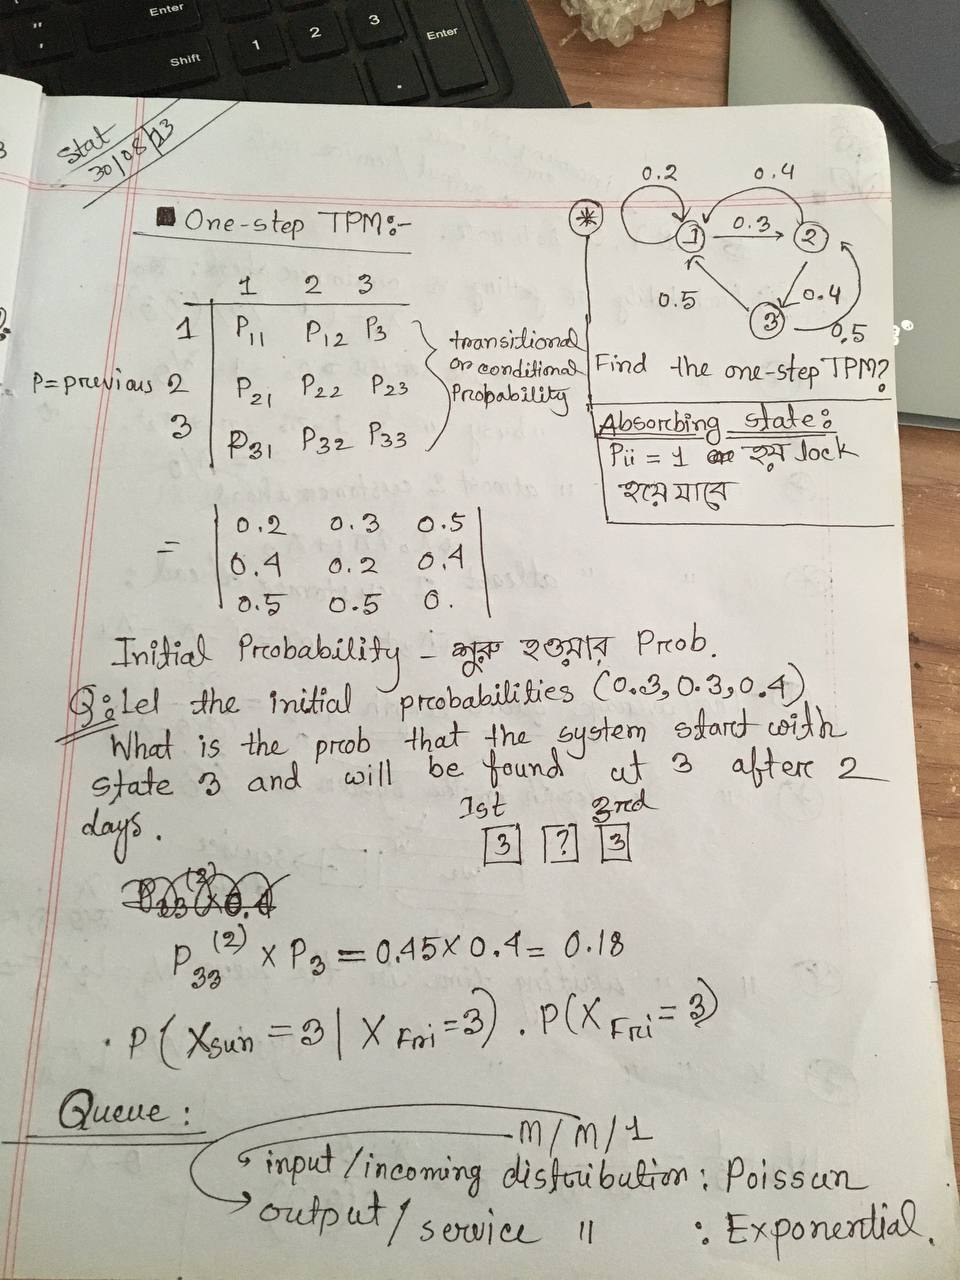 Enter
Shift
1
2
3
Enter
Stat
30/08/23
■ One-step TPM:-
1 2 3
1 P11 P12 P3
P=previous 2 P21 P22 P23
3 P31 P32 P33
transitional
or conditional
Probability
*
0.2 0.4
1 0.3 2
0.5 0.4
3 0.5
Find the one-step TPM?
Absorbing state:
Pii = 1 হয় lock
হয়ে যাবে
= 0.2 0.3 0.5
0.4 0.2 0.4
0.5 0.5 0.
Initial Probability - শুরু হওয়ার Prob.
Q: Let the initial probabilities (0.3, 0.3, 0.4)
What is the prob that the system start with
state 3 and will be found at 3 after 2
days.
1st 3rd
3 ? 3
P33(2) x P3 = 0.45 x 0.4 = 0.18
. P(Xsun = 3 | X Fri = 3) . P(X Fri = 3)
Queue:
m/m/1
input/incoming distribution : Poissun
output/service " : Exponential.